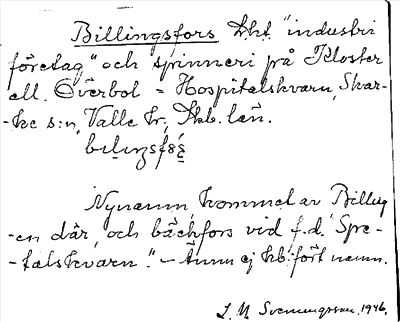 Billingsfors "industri
företag" och spinneri på Kloster
ell. Överbol = Hospitalskvarn, Skar-
-ke s:n, Valle hr, Skb. län.
Nynamn, kommet av Billing
-en där, och bäckfors vid f.d. "Spe-
-talskvarn". – Ännu ej kb:fört namn.
L. M. Svenungsson. 1946.